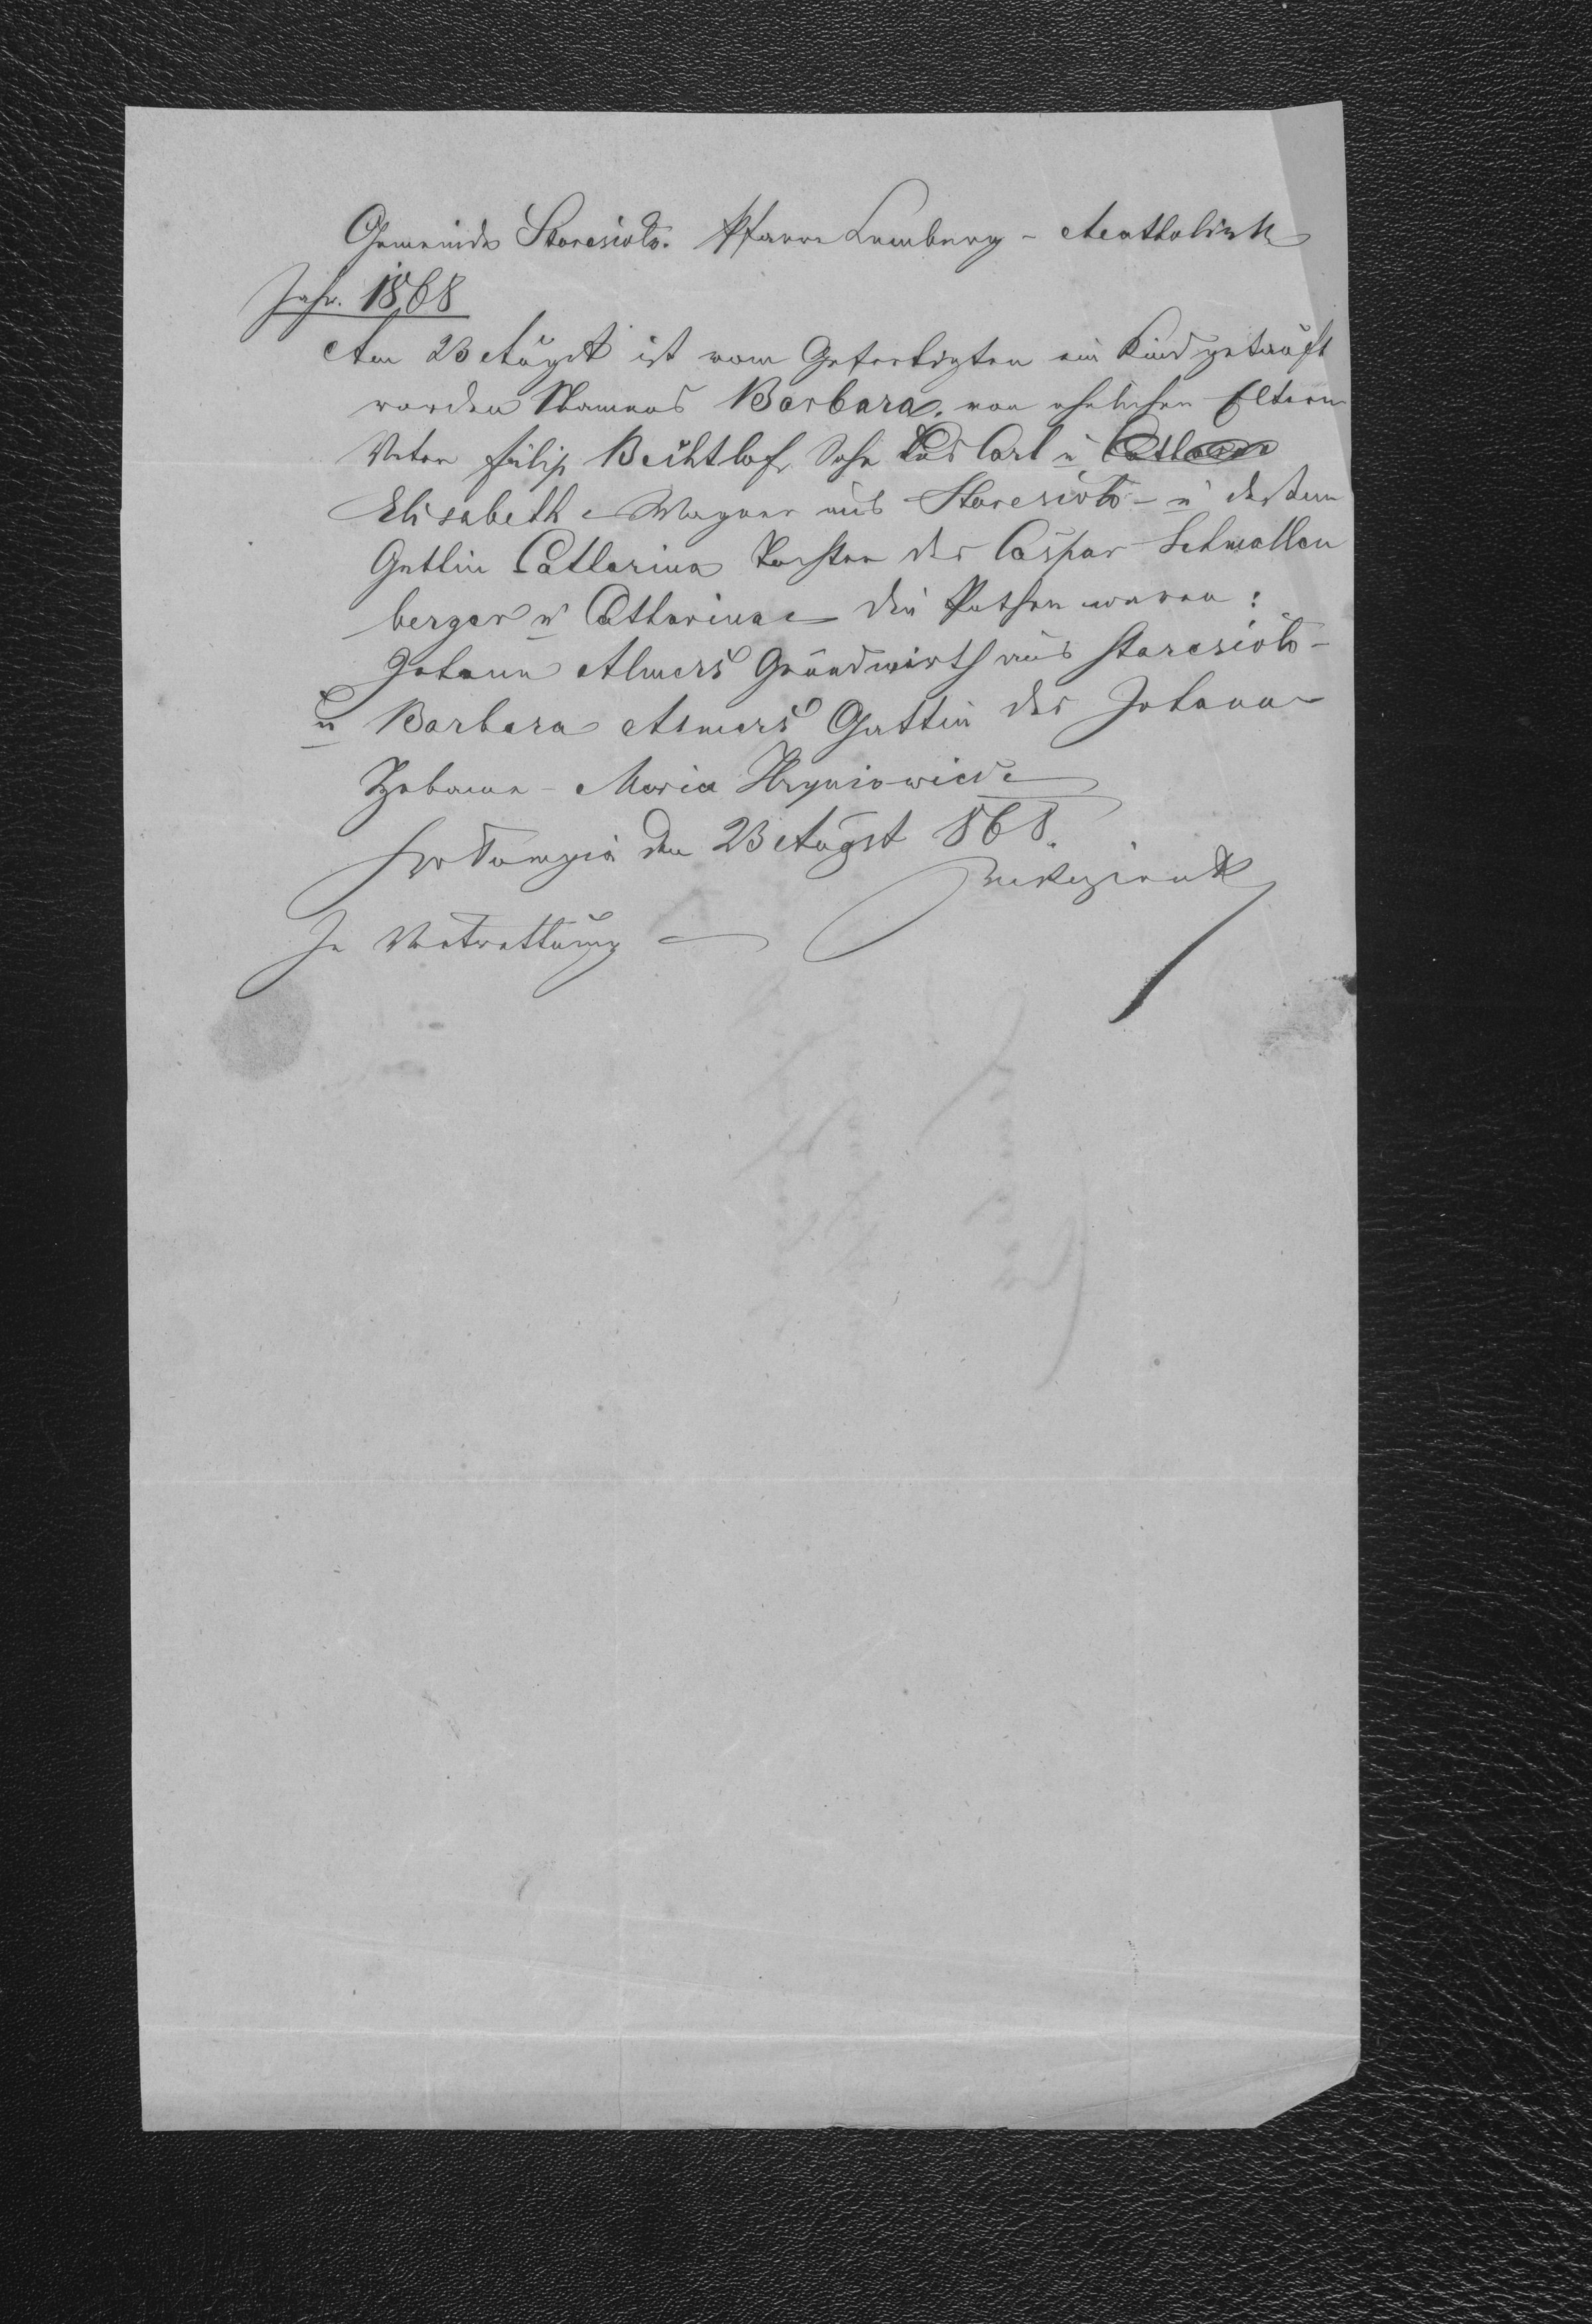 Gemeinde Staresioło. Pfarre Lemberg - Acatholisch
Jahr. 1868
Am 23 August ist vom Gefertigten ein Kind getauft
worden Namens Barbara. von ehelichen Eltern
Vater Filip Bechtlof, Sohn des Carl u
Elisabeth Wagner aus Staresioło - u dessen
Gattin Catharina Tochter des Caspar Schmallen
berger u Catharina - Die Pathen waren:
Johann Grundwirth aus Staresioło -
u Barbara Gattin des Johann
Hebamme - Maria Hryniowicz
den 23 August 868.
In Vertrettung